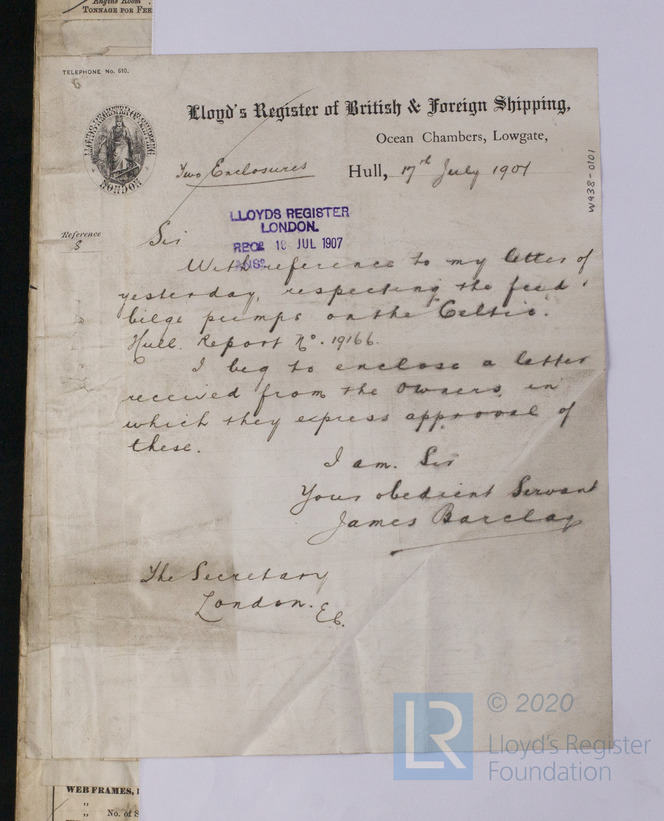 Engine Room
TONNAGE FOR FEE
TELEPHONE No. 610.
6
LLOYD'S REGISTER OF SHIPPING
LONDON
Lloyd's Register of British & Foreign Shipping,
Ocean Chambers, Lowgate,
Two Enclosures
Hull, 17th July 1907
W938-0101
Reference
S
LLOYDS REGISTER
LONDON.
RECD 18 JUL 1907
ANSD
Sir
With reference to my letter of
yesterday, respecting the feed &
bilge pumps on the "Celtic".
Hull. Report No. 19166.
I beg to enclose a letter
received from the Owners, in
which they express approval of
these.
I am. Sir
Your obedient Servant
James Barclay
The Secretary
London. E.C.
WEB FRAMES,
" No. of S
© 2020
LR
Lloyd's Register
Foundation